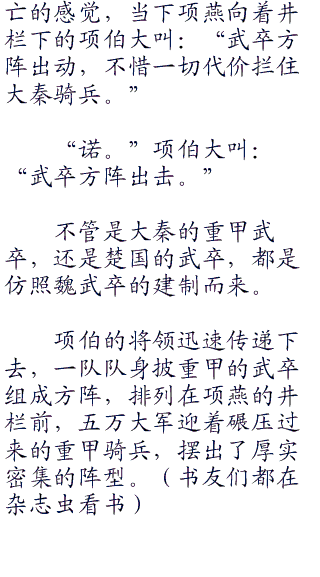 亡的感觉，当下项燕向着井
栏下的项伯大叫：“武卒方
阵出动，不惜一切代价拦住
大秦骑兵。”
“诺。”项伯大叫：
“武卒方阵出击。”
不管是大秦的重甲武
卒，还是楚国的武卒，都是
仿照魏武卒的建制而来。
项伯的将领迅速传递下
去，一队队身披重甲的武卒
组成方阵，排列在项燕的井
栏前，五万大军迎着碾压过
来的重甲骑兵，摆出了厚实
密集的阵型。（书友们都在
杂志虫看书）